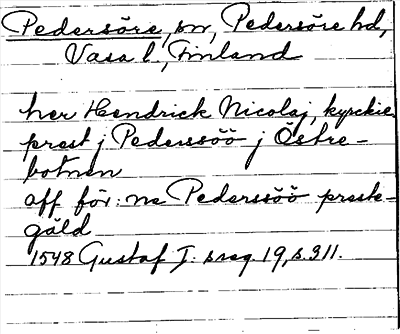 Pedersöre, sn, Pedersöre hd,
Vasa l, Finland
her Hendrick Nicolaj, kyrckie
prest j Pederssöö j Östre-
botnen
aff för:ne Pederssöö preste-
gäld
1548 Gustaf I. s reg. 19, s. 311.